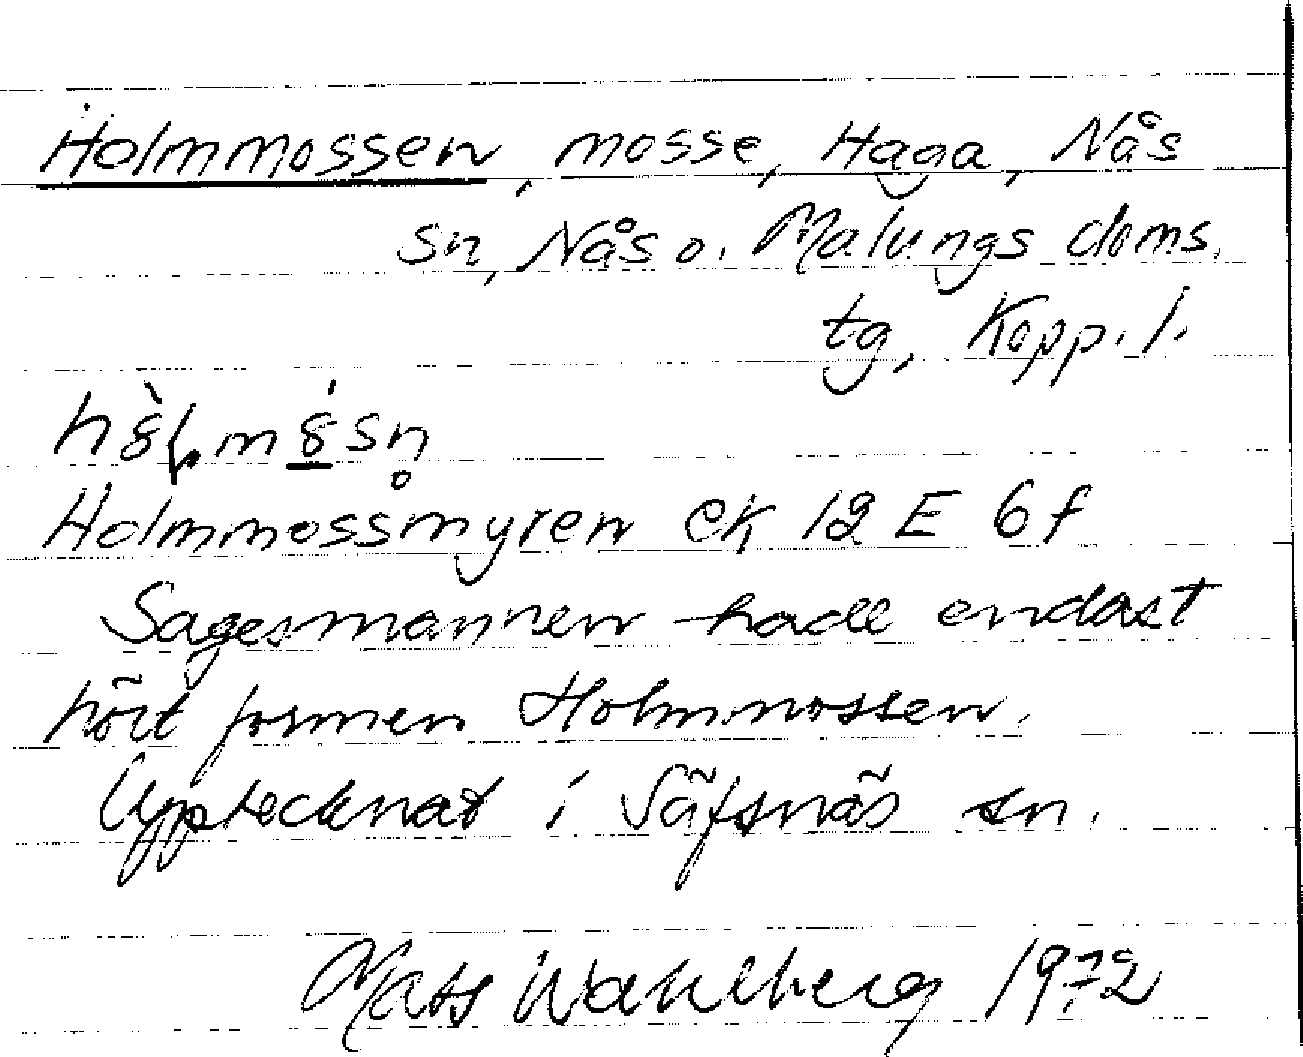 Holmmossen, mosse, Haga, Nås
sn, Nås o. Malungs doms.
tg, Kopp. l.
Holmmossmyren ek 12 E 6f
Sagesmannen hade endast
hört formen Holmmossen.
Upptecknat i Säfsnäs sn.
Mats Wahlberg 1972